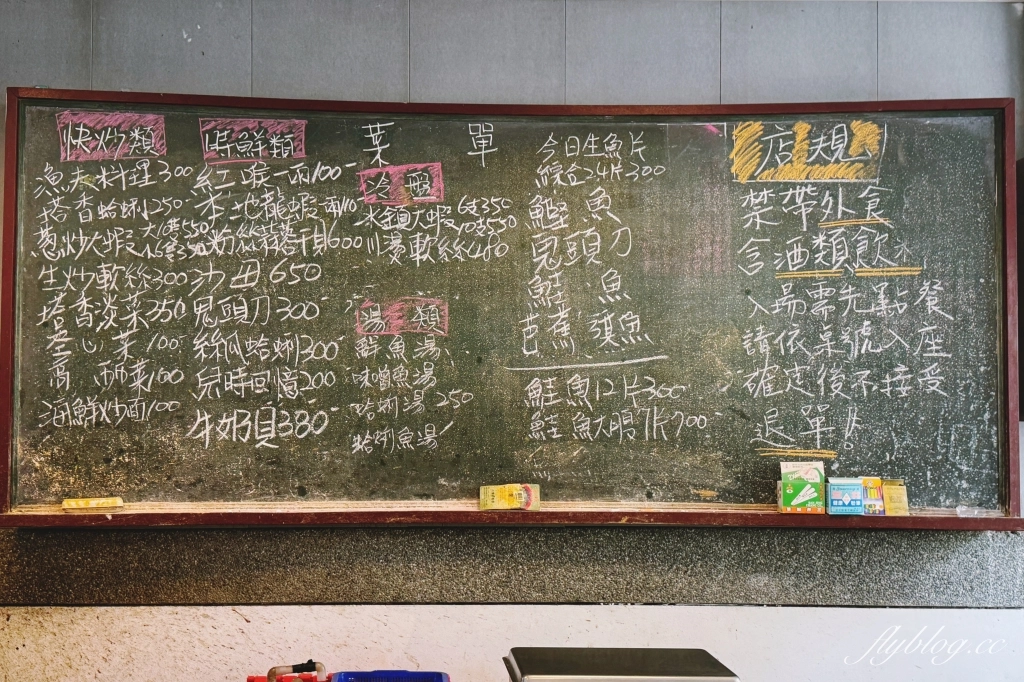 菜 單
快炒類
漁夫料理300
塔香蛤蜊250
蔥炒大蝦
生炒軟絲300
塔香淡菜350
空心菜100
高麗菜100
海鮮炒面100
時鮮類
紅喉一兩100
本地龍蝦
粉絲蒜蓉干貝600
沙母650
鬼頭刀300
絲瓜蛤蜊300
兒時回憶200
牛奶貝380
冷盤
冰鎮大蝦6支350 10支550
川燙軟絲480
湯類
鮮魚湯
味噌魚湯
蛤蜊湯250
蛤蜊魚湯
今日生魚片
綜合24片300
鰹魚
鬼頭刀
鮭魚
芭蕉旗魚
鮭魚12片300
鮭魚大腹7片700
店規
禁帶外食
含酒類飲水
入場需先點餐
請依桌號入座
確定後不接受
退單!!
flyblog.cc